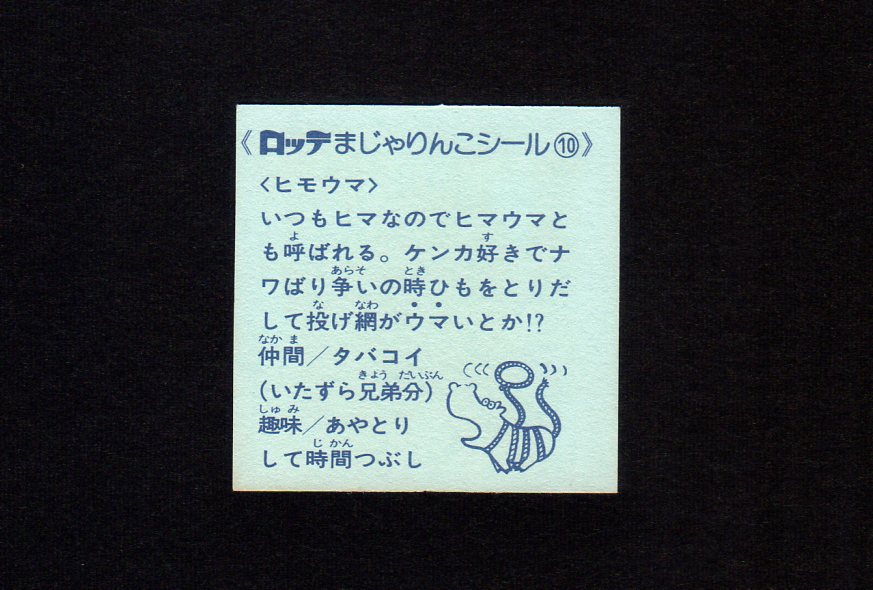 《ロッテまじゃりんこシール⑩》
〈ヒモウマ〉
いつもヒマなのでヒマウマと
も呼ばれる。ケンカ好きでナ
ワばり争いの時ひもをとりだ
して投げ網がウマいとか!?
仲間／タバコイ
(いたずら兄弟分)
趣味／あやとり
して時間つぶし